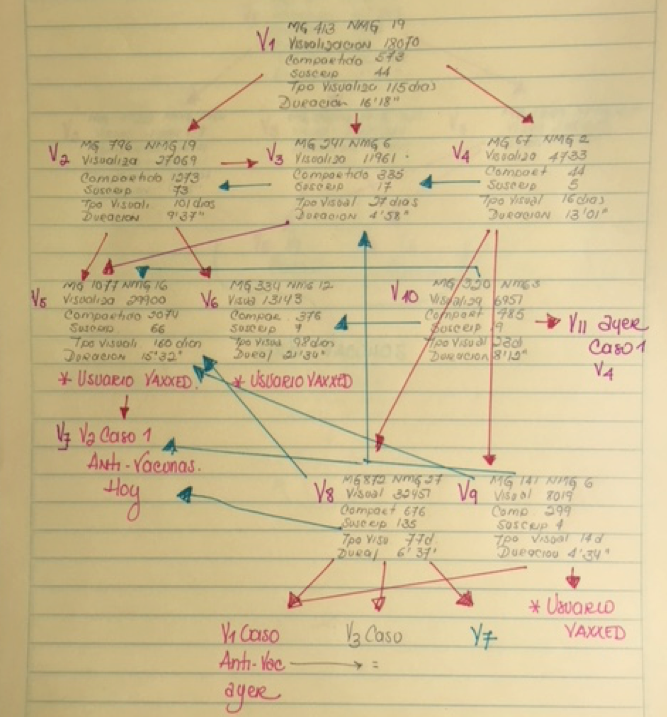 V1
MG 413 NMG 19
Visualización 18070
Compartido 573
Suscrip 44
Tpo Visualiza 115 dias
Duración 16'18"
V2
MG 796 NMG 19
Visualiza 27069
Compartido 1273
Suscrip 73
Tpo Visuali. 101 dias
Duracion 9'37"
V3
MG 241 NMG 6
Visualiza 11961
Compartido 335
Suscrip 17
Tpo Visual 27 dias
Duración 4'58"
V4
MG 67 NMG 2
Visualiza 4733
Compart 44
Suscrip 5
Tpo Visual 16 dias
Duracion 13'01"
V5
MG 1077 NMG 16
Visualiza 29900
Compartido 2074
Suscrip. 66
Tpo Visuali 160 dias
Duracion 15'32"
* Usuario VAXXED.
V6
MG 334 NMG 12
Visua 13143
Compar. 376
Suscrip 7
Tpo Visual 98 dias
Durac 21'34"
* Usuario VAXXED
V10
MG 320
Visualiza 6951
Compart 485
Suscrip 9
Tpo Visual 23d
Duracion 8'12"
V11 ayer
Caso 1
V4
V7 V2 Caso 1
Anti-Vacunas.
Hoy
V8
MG 872 NMG 27
Visual 32451
Compart 676
Suscrip 135
Tpo Visu 77d.
Durac 6'37"
V9
MG 141 NMG 6
Visual 8019
Comp. 299
Suscrip 4
Tpo Visual 14d
Duracion 4'34"
* Usuario
VAXXED
V1 Caso
Anti-Vac
ayer
V3 Caso
=
V7